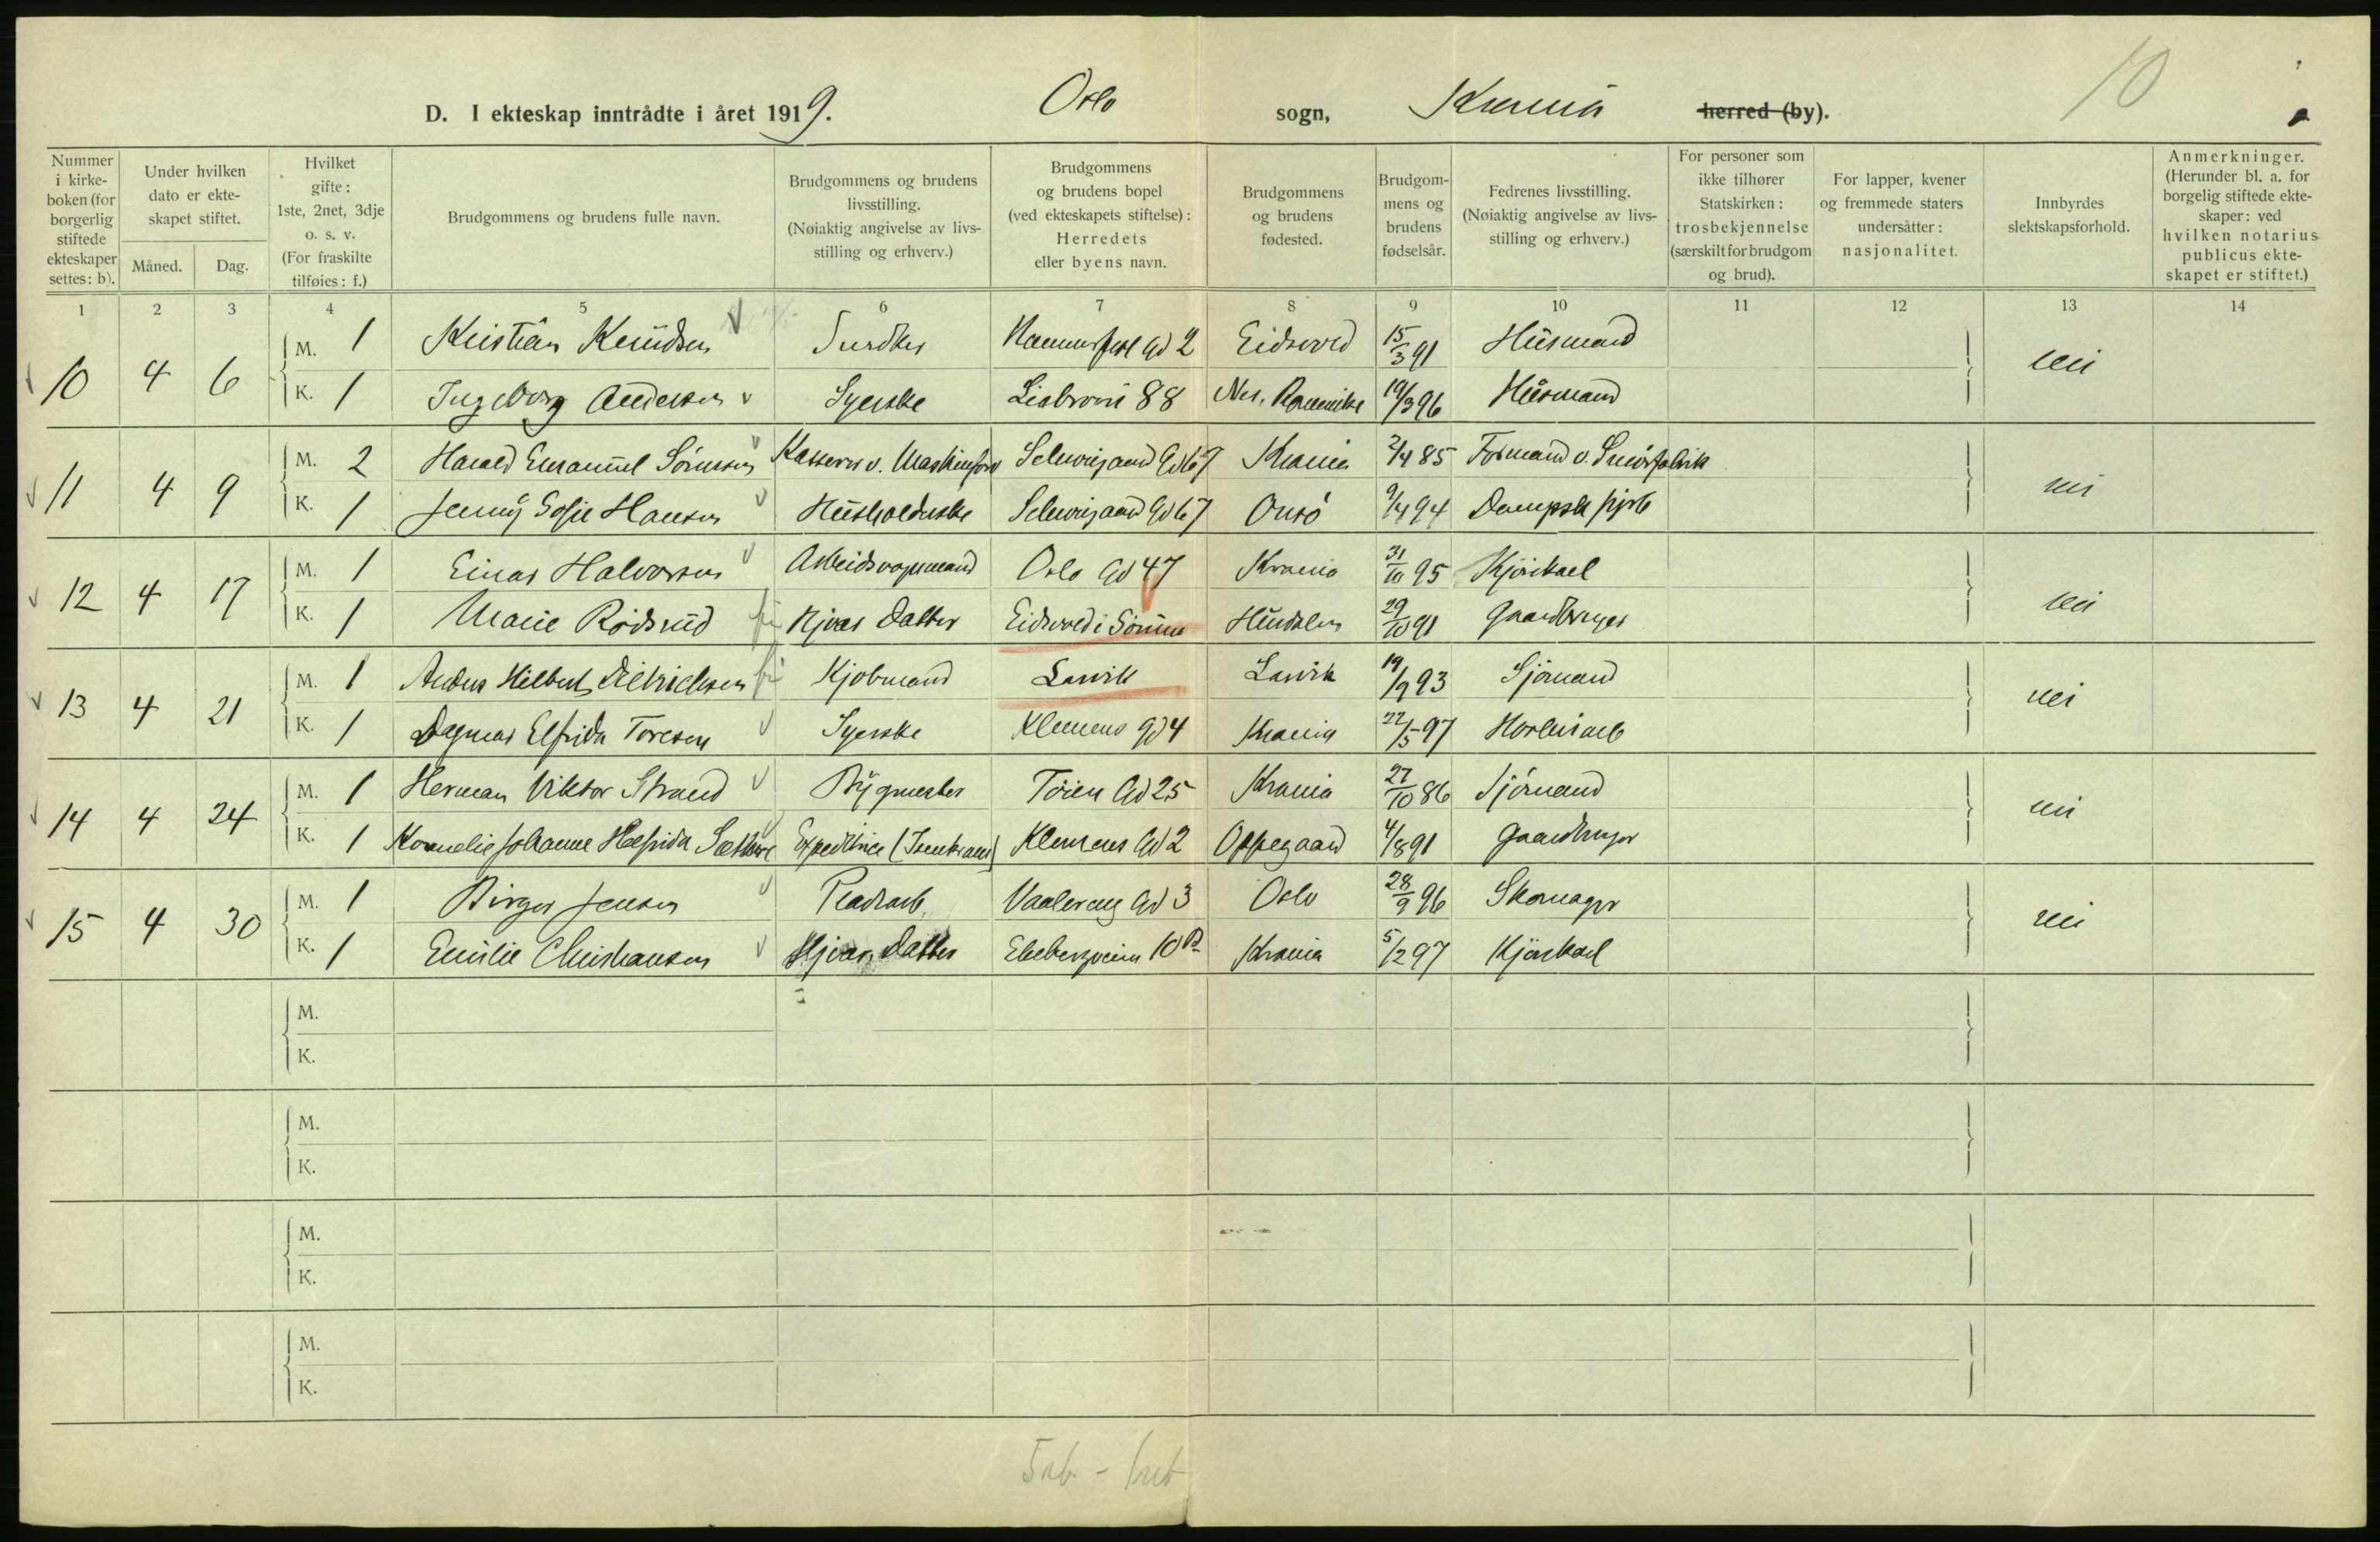 10
D. I ekteskap inntrådte i året 1919. Oslo sogn, Krania herred (by).
Nummer i kirke-boken (for borgerlig stiftede ekteskaper settes: b).
Under hvilken dato er ekte-skapet stiftet.
Måned. Dag.
Hvilket gifte: 1ste, 2net, 3dje o. s. v. (For fraskilte tilføies: f.)
Brudgommens og brudens fulle navn.
Brudgommens og brudens livsstilling. (Nøiaktig angivelse av livs-stilling og erhverv.)
Brudgommens og brudens bopel (ved ekteskapets stiftelse): Herredets eller byens navn.
Brudgommens og brudens fødested.
Brudgom-mens og brudens fødselsår.
Fedrenes livsstilling. (Nøiaktig angivelse av livs-stilling og erhverv.)
For personer som ikke tilhører Statskirken: trosbekjennelse (særskilt for brudgom og brud).
For lapper, kvener og fremmede staters undersåtter: nasjonalitet.
Innbyrdes slektskapsforhold.
Anmerkninger. (Herunder bl. a. for borgelig stiftede ekte-skaper: ved hvilken notarius publicus ekte-skapet er stiftet.)
1 2 3 4 5 6 7 8 9 10 11 12 13 14
10 4 6 M. 1 Kristian Knudsen Snedker Hammerfest Gd 2 Eidsvold 15/3 91 Husmand nei
K. 1 Ingeborg Andersen Syerske Liabrovei 88 Nes, Romerike 19/3 96 Husmand
11 4 9 M. 2 Harald Emanuel Sörensen Kasserer v. Maskinforr Schweigaard Gd 67 Krania 2/4 85 Formand v. Smörfabrik nei
K. 1 Jenny Sofie Hansen Husholderske Schweigaard Gd 67 Onsö 9/4 94 Dampsk fyrb
12 4 17 M. 1 Einar Halvorsen Arbeidsvognmand Oslo Gd 47 Krania 31/10 95 Kjörekarl nei
K. 1 Marie Rödsrud Hjvær Datter Eidsvold i Sörum Hurdalen 29/10 91 Gaardbruger
13 4 21 M. 1 Anders Hilbert Dietrichsen Kjöbmand Larvik Larvik 19/9 93 Sjömand nei
K. 1 Dagmar Elfrida Toresen Syerske Klemens Gd 4 Krania 22/5 97 Havnearb
14 4 24 M. 1 Herman Viktor Strand Bygmester Töien Gd 25 Krania 27/10 86 Sjömand nei
K. 1 Kornelie Johanne Helfrida Sæthre Expeditrice Klemens Gd 2 Oppegaard 4/8 91 Gaardbruger
15 4 30 M. 1 Birger Jensen Pladsarb. Vaalereng Gd 3 Oslo 28/9 96 Skomager nei
K. 1 Emilie Christiansen Hjvær Datter Ekebergveien 10 B Krania 5/2 97 Kjörekarl
M.
K.
M.
K.
M.
K.
M.
K.